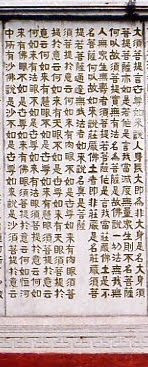 大須菩提言世尊如來說人身長大即為非大身是名大身須
菩提菩薩亦如是若作是言我當滅度無量眾生則不名菩薩
何以故須菩提實無有法名為菩薩是故佛說一切法無我無
人無眾生無壽者須菩提若菩薩作是言我當莊嚴佛土是不
名菩薩何以故如來說莊嚴佛土者即非莊嚴是名莊嚴須菩
提若菩薩通達無我法者如來說名真是菩薩
須菩提於意云何如來有肉眼不如是世尊如來有肉眼須菩
提於意云何如來有天眼不如是世尊如來有天眼須菩提於
意云何如來有慧眼不如是世尊如來有慧眼須菩提於意云
何如來有法眼不如是世尊如來有法眼須菩提於意云何如
來有佛眼不如是世尊如來有佛眼須菩提於意云何如恒河
中所有沙佛說是沙不如是世尊如來說是沙須菩提於意云